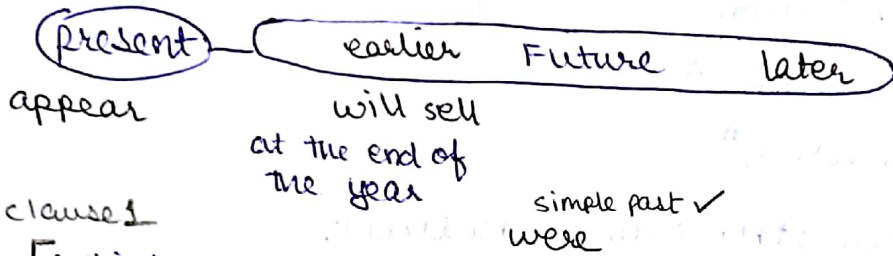 present earlier Future later
appear will sell
at the end of
the year
simple past ✓
clause 1 were